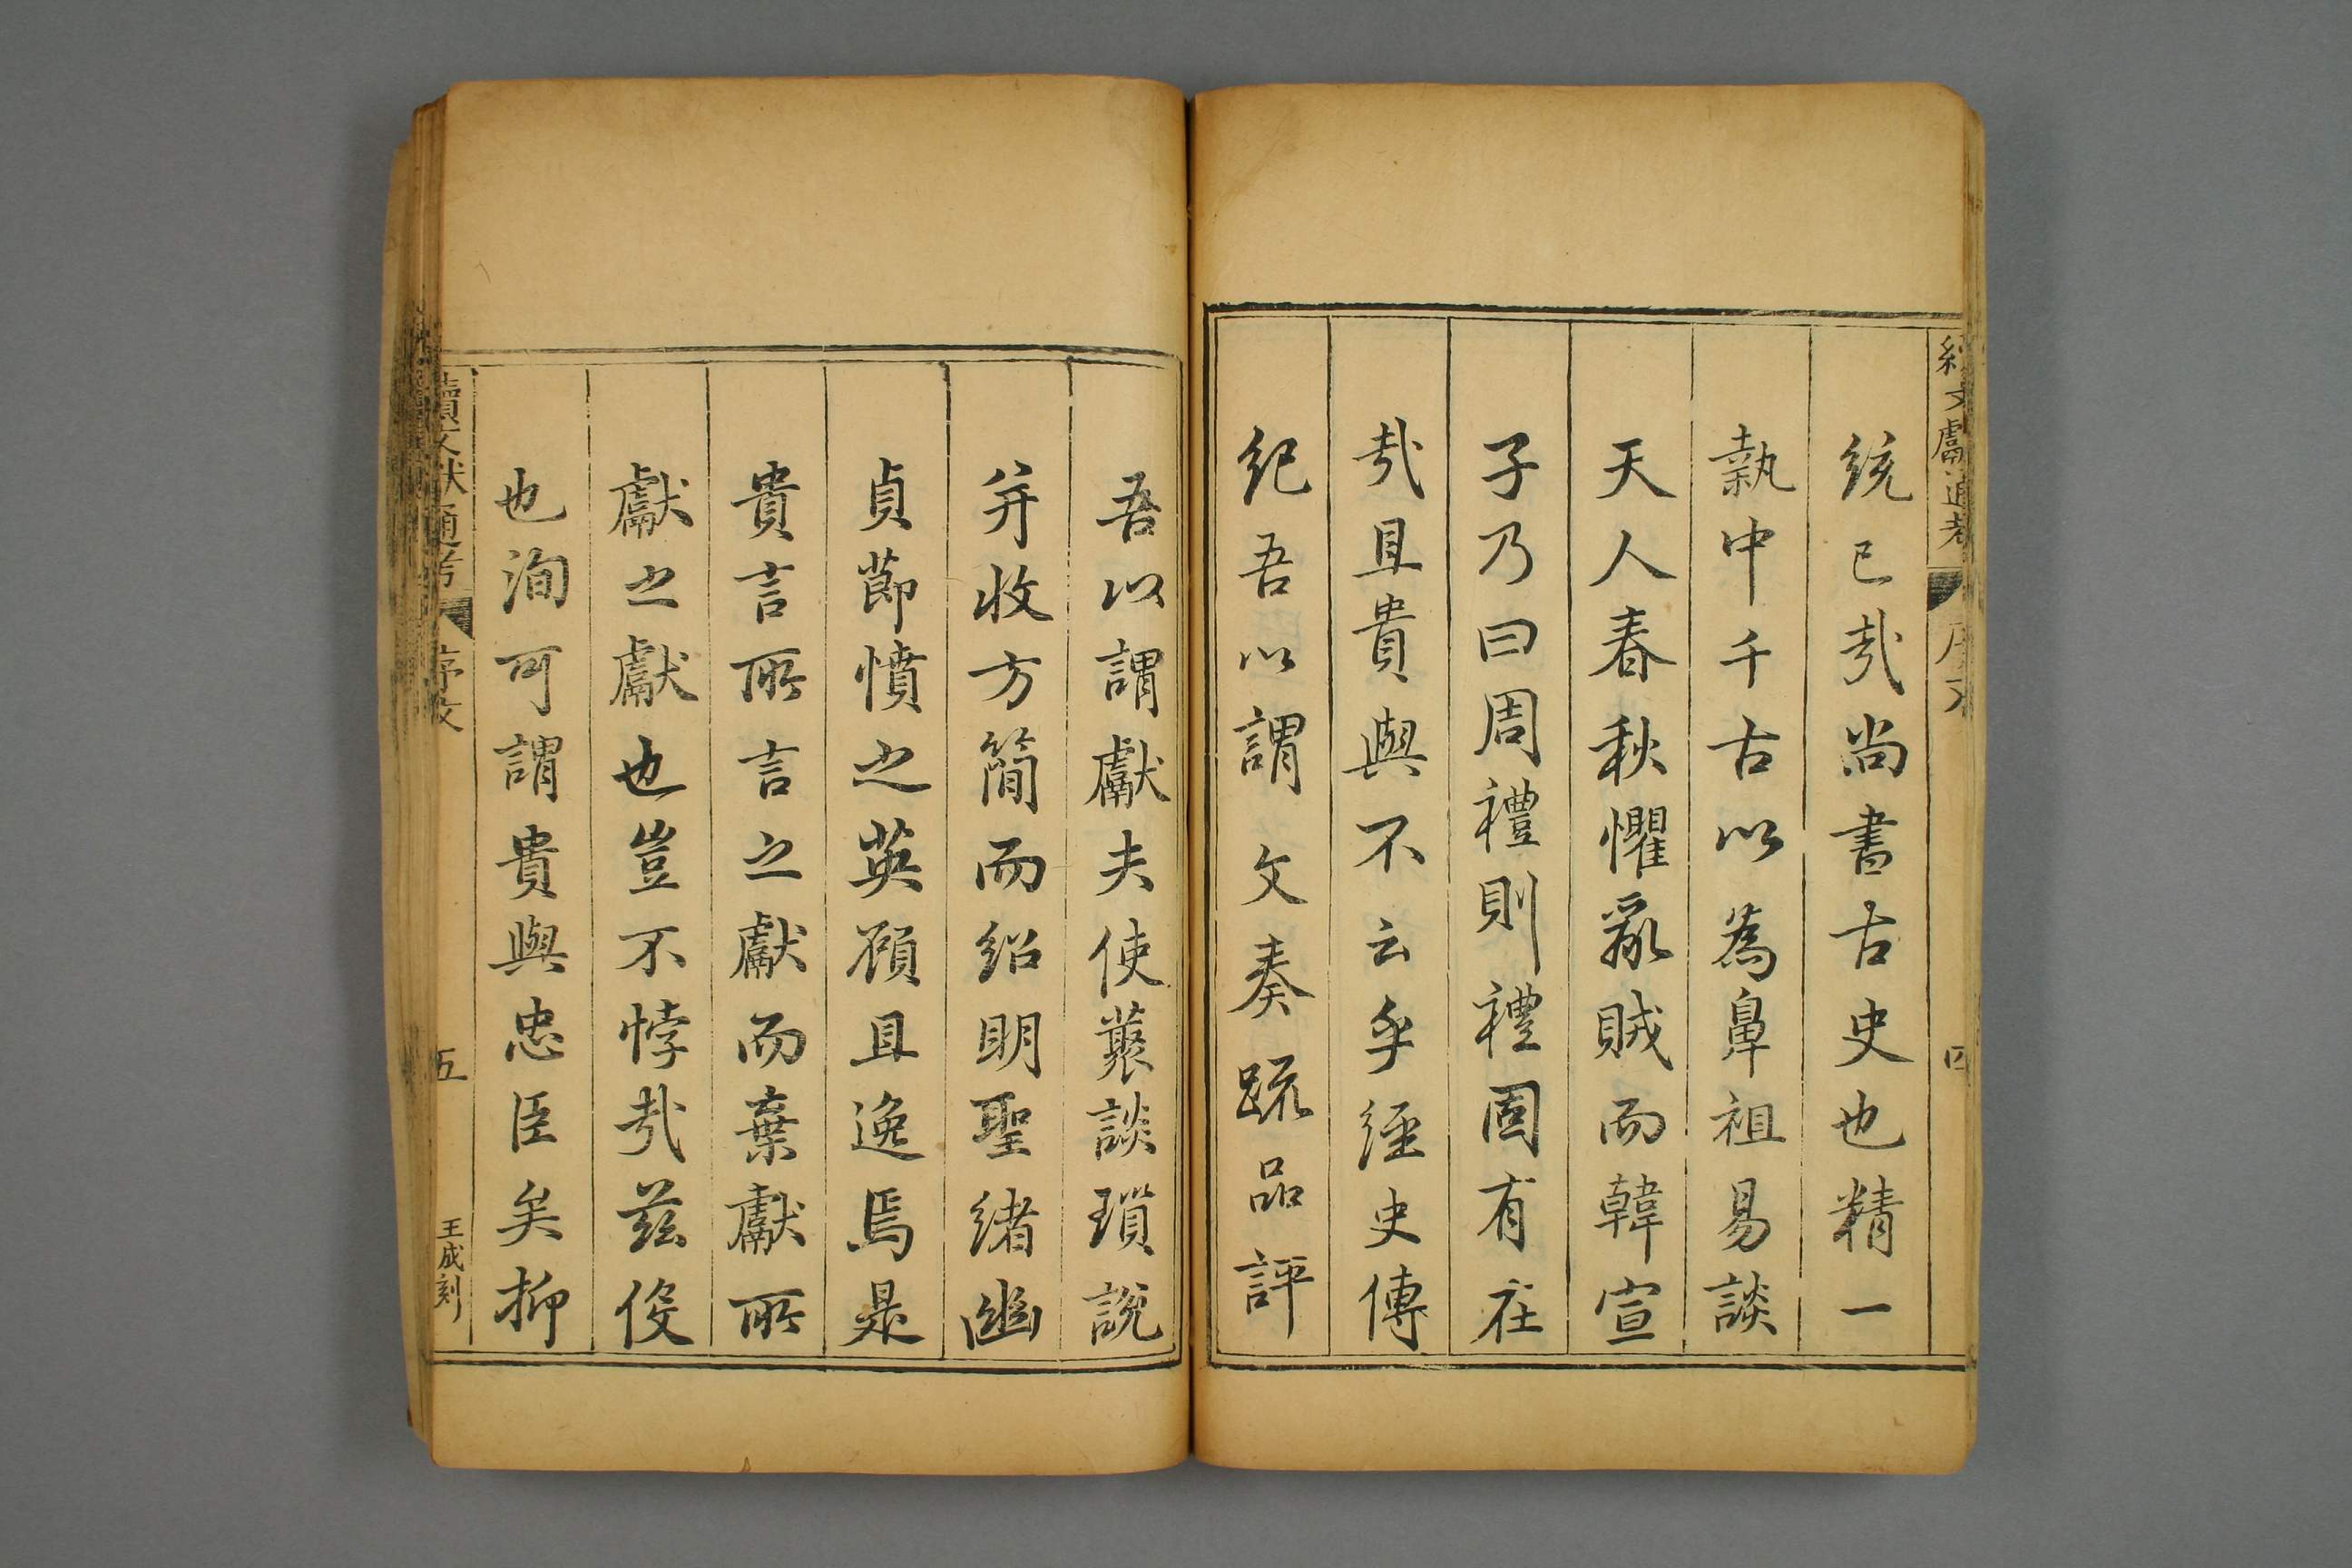 續文獻通考
序文
四
統已哉尚書古史也精一
執中千古以為鼻祖易談
天人春秋懼亂賊而韓宣
子乃曰周禮則禮固有在
哉且貴與不云乎經史傳
紀吾以謂文奏疏品評
吾以謂獻夫使叢談瑣說
并收方簡而紹明聖緒幽
貞節憤之英顧且逸焉是
貴言所言之獻而棄獻所
獻之獻也豈不悖哉茲役
也洵可謂貴與忠臣矣抑
續文獻通考
序文
五
王成刻